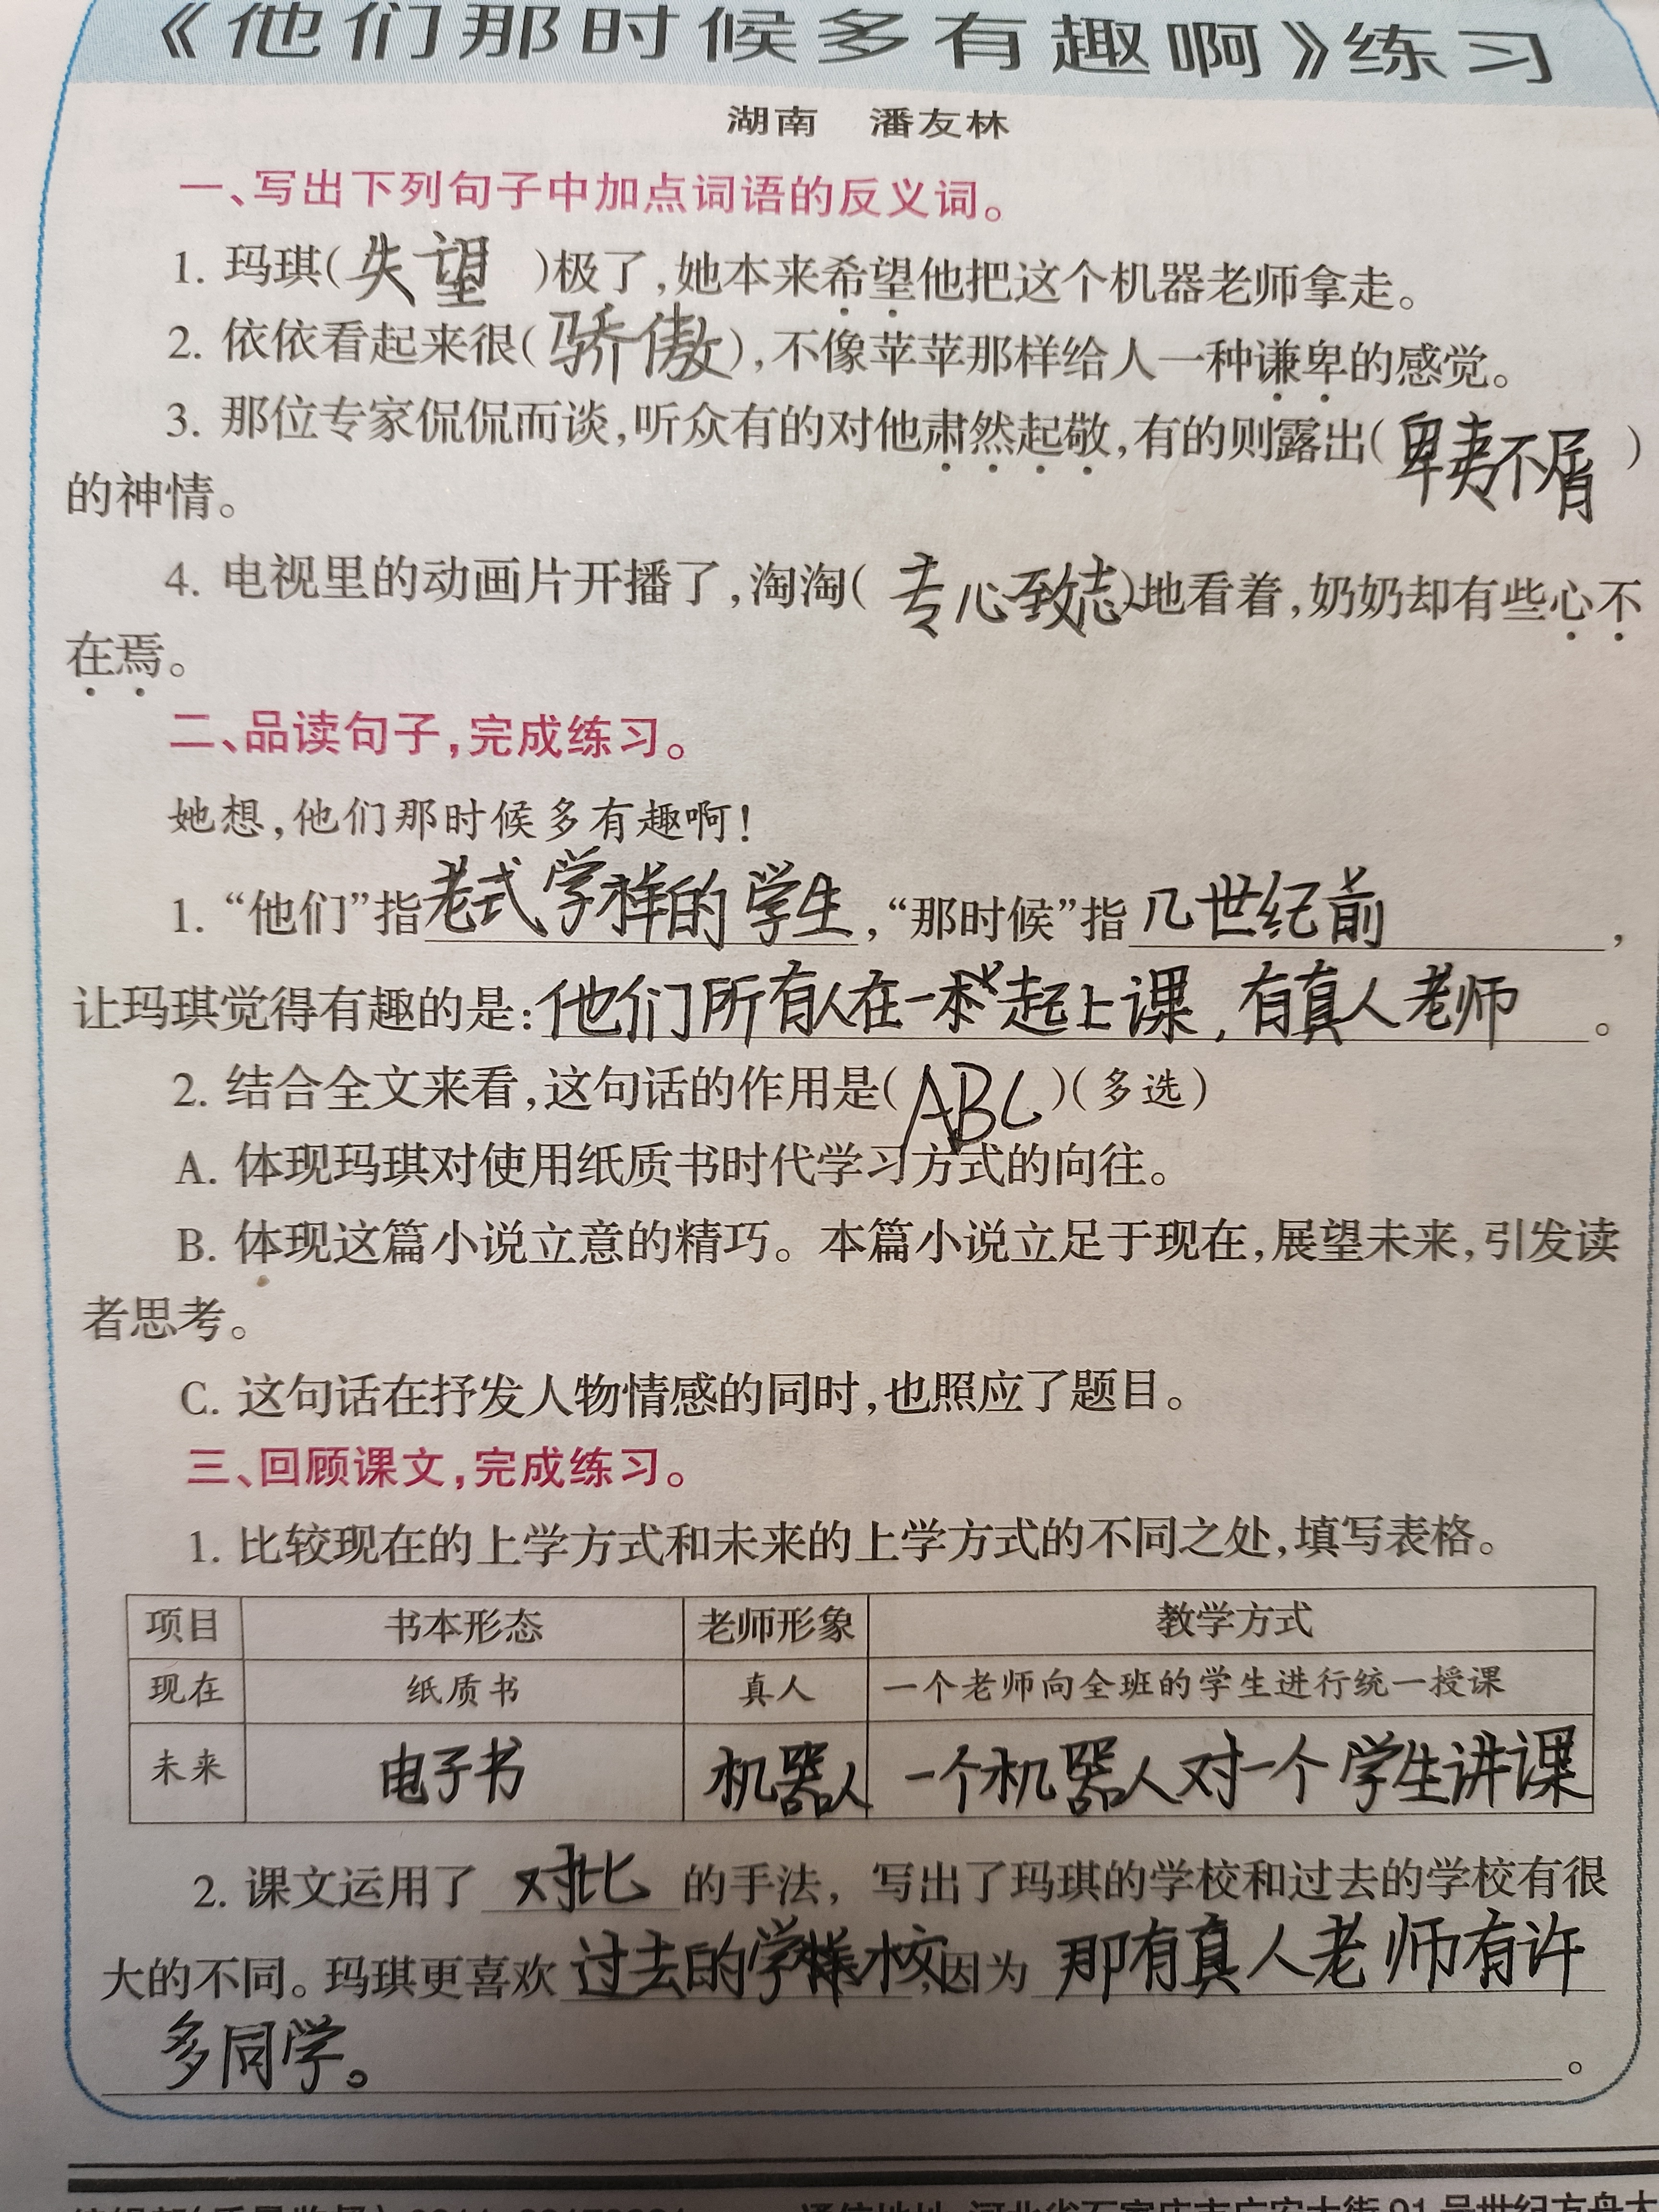 《他们那时候多有趣啊》练习
湖南 潘友林
一、写出下列句子中加点词语的反义词。
1. 玛琪(失望)极了,她本来希望他把这个机器老师拿走。
2. 依依看起来很(骄傲),不像苹苹那样给人一种谦卑的感觉。
3. 那位专家侃侃而谈,听众有的对他肃然起敬,有的则露出(卑夷不屑)
的神情。
4. 电视里的动画片开播了,淘淘(专心致志)地看着,奶奶却有些心不
在焉。
二、品读句子,完成练习。
她想,他们那时候多有趣啊!
1. “他们”指老式学样的学生,“那时候”指几世纪前,
让玛琪觉得有趣的是:他们所有人在一起上课,有真人老师。
2. 结合全文来看,这句话的作用是(ABC)(多选)
A. 体现玛琪对使用纸质书时代学习方式的向往。
B. 体现这篇小说立意的精巧。本篇小说立足于现在,展望未来,引发读
者思考。
C. 这句话在抒发人物情感的同时,也照应了题目。
三、回顾课文,完成练习。
1. 比较现在的上学方式和未来的上学方式的不同之处,填写表格。
项目 书本形态 老师形象 教学方式
现在 纸质书 真人 一个老师向全班的学生进行统一授课
未来 电子书 机器人 一个机器人对一个学生讲课
2. 课文运用了 对比 的手法,写出了玛琪的学校和过去的学校有很
大的不同。玛琪更喜欢 过去的学校,因为 那有真人老师有许
多同学。。